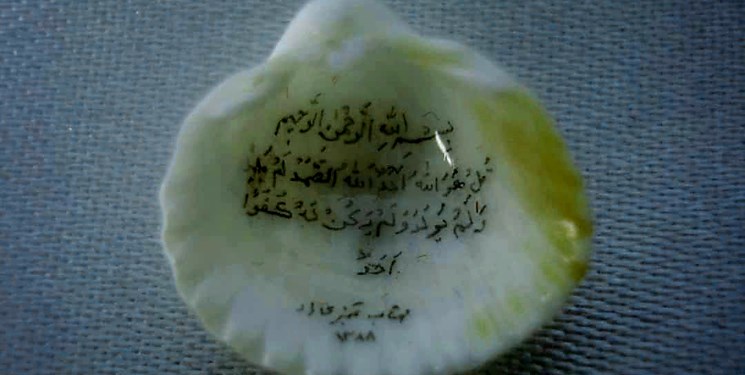 بِسْمِ اللهِ الرَّحْمٰنِ الرَّحِيمِ
قُلْ هُوَ اللهُ أَحَدٌ اللهُ الصَّمَدُ لَمْ يَلِدْ
وَلَمْ يُولَدْ وَلَمْ يَكُنْ لَهُ كُفُوًا
أَحَدٌ
١٣٨٨